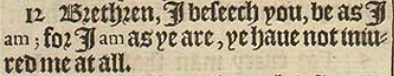 12 Brethren, I beseech you, be as I
am; for I am as ye are, ye haue not iniu-
red me at all.